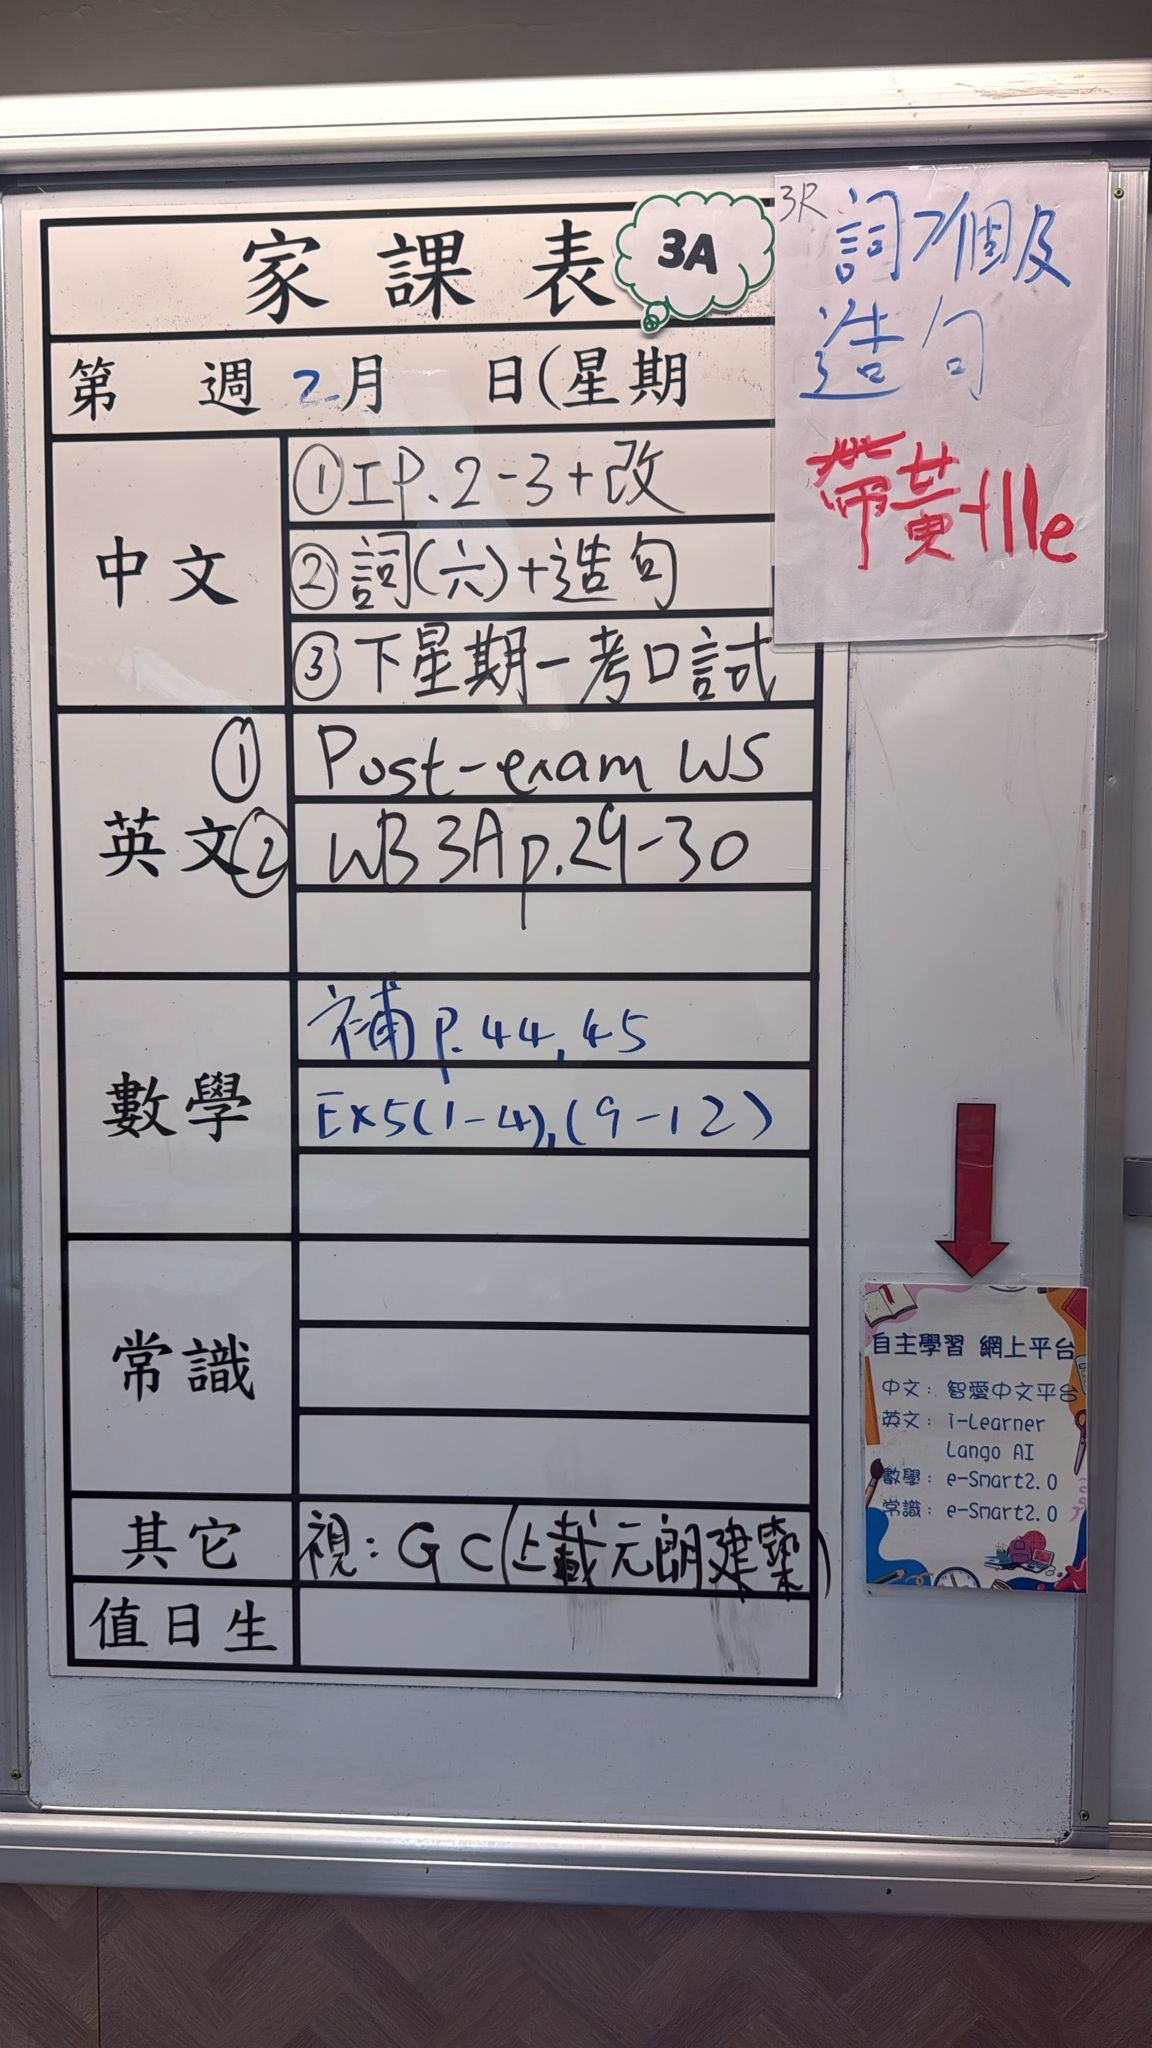 家課表
3A
第 週 2月 日(星期
中文
①工P.2-3+改
②詞(六)+造句
③下星期一考口試
英文
① Post-exam WS
② WB 3A p.29-30
數學
補 p.44,45
Ex5(1-4),(9-12)
常識
其它
視:GC(上載元朗建築)
值日生
3R
詞7個及
造句
帶黃file
自主學習 網上平台
中文: 智愛中文平台
英文: i-Learner
Lango AI
數學: e-Smart2.0
常識: e-Smart2.0